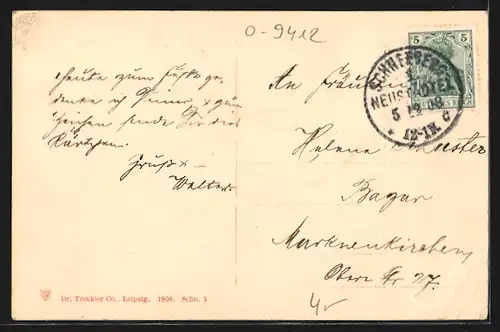 O-9412
Heute zum Feste ge-
denke ich Deiner, & zum
Zeichen sende Dir dies
Kärtchen.
Gruß
Walter
An Fräulein
Helene Schuster
Markneukirchen
Obere Str 27.
SCHNEEBERG-
NEUSTÄDTEL
5 12 08
12-1N. c
5 5
Dr. Trenkler Co., Leipzig. 1908. Schn. 5